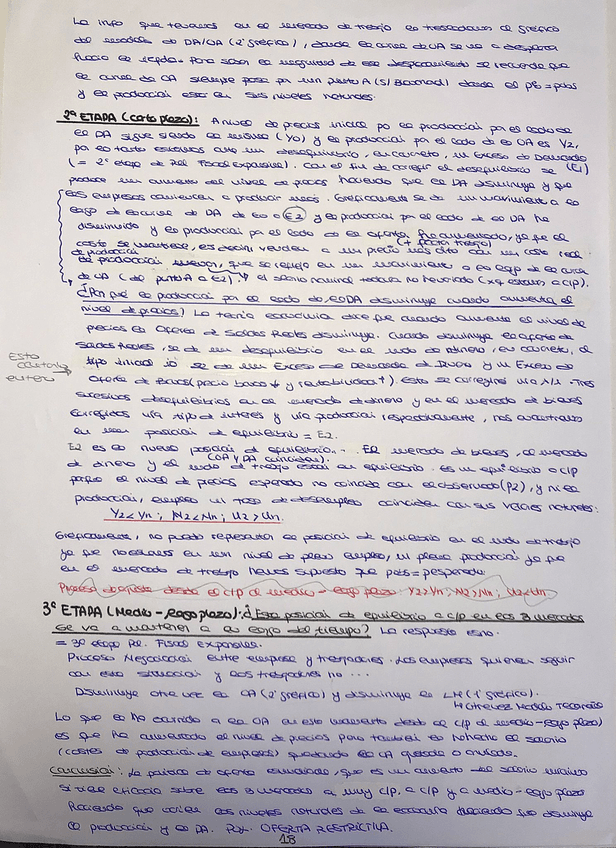 La info que tenemos en el mercado de trabajo la trasladamos al gráfico
del modelo de DA/OA (2º gráfico), donde la curva de OA se va a desplazar
hacia la izqda. Para saber la magnitud de ese desplazamiento se recuerda que
la curva de OA siempre pasa por un punto A (s/ ) donde el pe = pobs
y la producción está en sus niveles naturales.
2ª ETAPA (corto plazo): A nivel de precios inicial p0 la producción por el lado de
la DA sigue siendo la misma (Y0) y la producción por el lado de la OA es Y2,
por lo tanto estamos ante un desequilibrio, en concreto, un Exceso de Demanda
(= 2ª etapa de Pol Fiscal Expansiva). Con el fin de corregir el desequilibrio se (E1)
produce un aumento del nivel de precios haciendo que la DA disminuya y que
las empresas comiencen a producir más. Gráficamente se da un movimiento a lo
largo de la curva de DA de E0 a E2 y la producción por el lado de la DA ha
disminuido y la producción por el lado de la oferta ha aumentado, ya que el
coste se mantiene, es decir, venden a un precio más alto con un coste real
(+ factor trabajo)
de producción, que se refleja en un movimiento a lo largo de la curva
de OA (de punto A a E2). el salario nominal todavía no ha variado (xq estamos a c/p).
¿Por qué la producción por el lado de la DA disminuye cuando aumenta el
nivel de precios? La teoría económica dice que cuando aumenta el nivel de
precios la Oferta de Saldos Reales disminuye. Cuando disminuye la oferta de
saldos reales, se da un desequilibrio en el mdo de dinero, en concreto, al
Esto
entero
tipo inicial i0 se da un Exceso de Demanda de Dinero y un Exceso de
Oferta de Bonos (precio bonos ↓ y rentabilidad ↑). Esto se corregirá vía Tras
sucesivos desequilibrios en el mercado de dinero y en el mercado de bienes
corregidos vía tipo de interés y vía producción respectivamente, nos encontramos
en una posición de equilibrio = E2.
E2 es la nueva posición de equilibrio. El mercado de bienes, el mercado
(OA y DA coinciden).
de dinero y el mdo de trabajo están en equilibrio. Es un equilibrio a c/p
porque el nivel de precios esperado no coincide con el observado (P2), y ni la
producción, empleo ni tasa de desempleo coinciden con sus valores naturales:
Y2 < Yn ; N2 < Nn ; U2 > Un.
Gráficamente, no puedo representar la posición de equilibrio en el mdo de trabajo
ya que no estamos en un nivel de pleno empleo, ni plena producción ya que
en el mercado de trabajo hemos supuesto que pobs = pesperado.
Proceso de ajuste desde el c/p al medio-largo plazo: Y2 > Yn; N2 > Nn; U2 < Un
3ª ETAPA (Medio-largo plazo): ¿Esta posición de equilibrio a c/p en los 3 mercados
se va a mantener a lo largo del tiempo? La respuesta es no.
= 3ª etapa Pol. Fiscal expansiva.
Proceso Negociación entre empresa y trabajadores. Las empresas quieren seguir
con esta situación y los trabajadores no ...
Disminuye otra vez la OA (2º gráfico) y disminuye la LM (1º gráfico).
Lo que le ha ocurrido a la OA en este movimiento desde el c/p al medio-largo plazo
es que ha aumentado el nivel de precios pero también lo ha hecho el salario
(costes de producción de empresas) quedando la OA
Conclusión: La política de oferta estudiada, que es un aumento del salario mínimo
si tiene eficacia sobre los 3 mercados a muy c/p, a c/p y a medio-largo plazo
haciendo que varíen los niveles naturales de la economía haciendo que disminuya
la producción y la DA. Pol. OFERTA RESTRICTIVA.
18